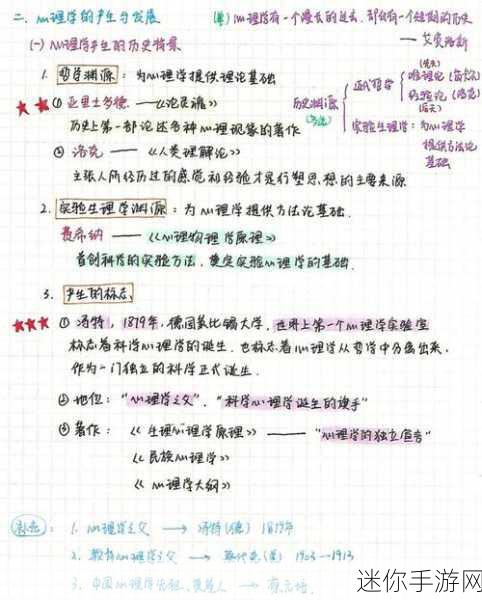 二、心理学的产生与发展
(单) 心理学有一个漫长的过去,却只有一个短期的历史
——艾宾浩斯
(一) 心理学产生的历史背景
1. 哲学渊源:为心理学提供理论基础
★★① 亚里士多德——《论灵魂》
历史上第一部论述各种心理现象的著作
② 洛克——《人类理解论》
主张人所经历过的感觉和经验才是行塑思想的主要来源
历史渊源
近代哲学
唯理论(笛卡尔)
经验论(洛克)
实验生理学:为心理学
提供方法论
基础
2. 实验生理学渊源:为心理学提供方法论基础.
费希纳——《心理物理学原理》
首创科学的实验方法,奠定实验心理学的基础.
3. 产生的标志
★★★① 冯特,1879年,德国莱比锡大学,世界上第一个心理学实验室
标志着科学心理学的诞生,也标志着心理学从哲学中分离出来,
作为一门独立的科学正式诞生.
② 地位:"心理学之父","科学心理学诞生的旗手"
③ 著作:《生理心理学原理》——"心理学的独立宣言"
《民族心理学》
《心理学大纲》
1. 心理学之父 → 冯特(德) 1879年
2. 教育心理学之父 → 桑代克(美) 1903—1913
3. 中国心理学先驱、奠基人 → 蔡元培
迷你手游网